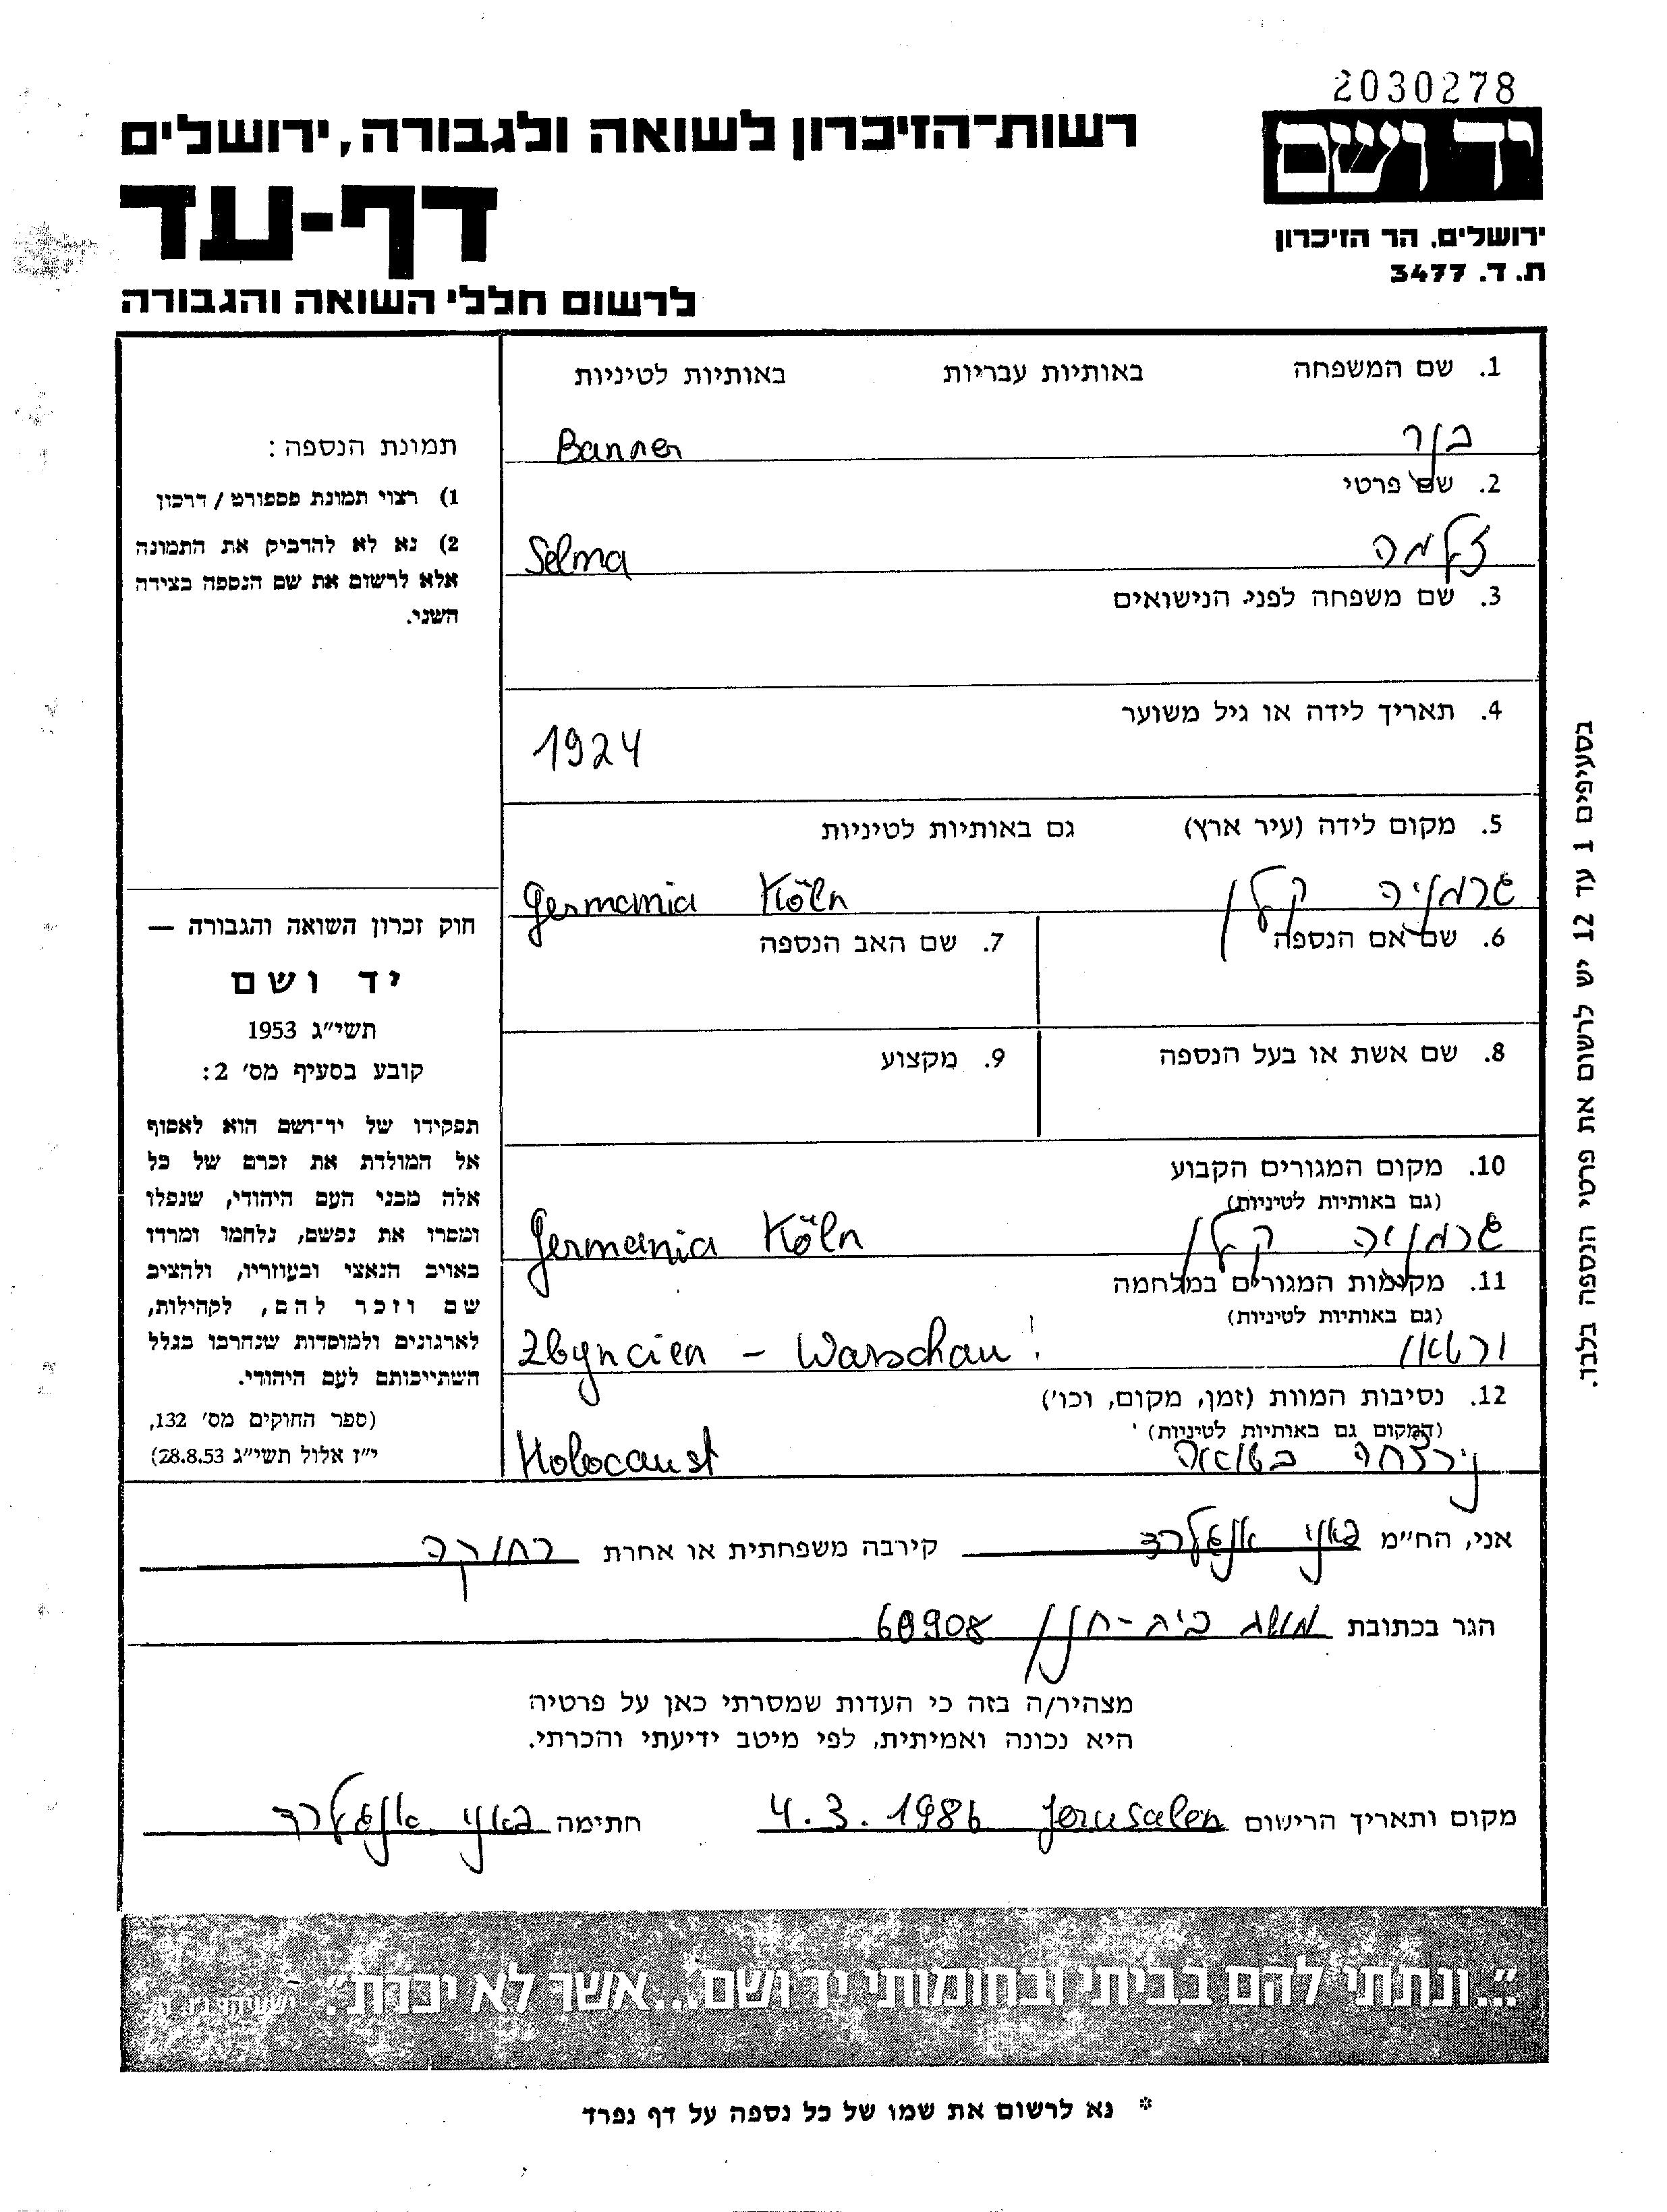 2030278
יד ושם
ירושלים, הר הזיכרון
ת. ד. 3477
רשות־הזיכרון לשואה ולגבורה, ירושלים
דף-עד
לרשום חללי השואה והגבורה
1. שם המשפחה באותיות עבריות באותיות לטיניות
בנר Banner
2. שם פרטי
זלמה Selma
3. שם משפחה לפני הנישואים
4. תאריך לידה או גיל משוער
1924
5. מקום לידה (עיר ארץ) גם באותיות לטיניות
גרמניה קלן Germania Köln
6. שם אם הנספה 7. שם האב הנספה
8. שם אשת או בעל הנספה 9. מקצוע
10. מקום המגורים הקבוע
(גם באותיות לטיניות)
גרמניה קלן Germania Köln
11. מקומות המגורים במלחמה
(גם באותיות לטיניות)
ורשאו Zbyncien - Warschau
12. נסיבות המוות (זמן, מקום, וכו')
(המקום גם באותיות לטיניות)
נירצחה בשואה Holocaust
תמונת הנספה:
1) רצוי תמונת פספורט / דרכון
2) נא לא להדביק את התמונה
אלא לרשום את שם הנספה בצידה
השני.
חוק זכרון השואה והגבורה —
יד ושם
תשי״ג 1953
קובע בסעיף מס׳ 2:
תפקידו של יד־ושם הוא לאסוף
אל המולדת את זכרם של כל
אלה מבני העם היהודי, שנפלו
ומסרו את נפשם, נלחמו ומרדו
באויב הנאצי ובעוזריו, ולהציב
שם וזכר להם, לקהילות,
לארגונים ולמוסדות שנהרבו בגלל
השתייכותם לעם היהודי.
(ספר החוקים מס׳ 132,
י״ז אלול תשי״ג 28.8.53)
בסעיפים 1 עד 12 יש לרשום את פרטי הנספה בלבד.
אני, הח״מ פאני אנגלרד קירבה משפחתית או אחרת רחוקה
הגר בכתובת מושב בית-חנן 60908
מצהיר/ה בזה כי העדות שמסרתי כאן על פרטיה
היא נכונה ואמיתית, לפי מיטב ידיעתי והכרתי.
מקום ותאריך הרישום Jerusalen 4.3.1986 חתימה פאני אנגלרד
"...ונתתי להם בביתי ובחומותי יד ושם...אשר לא יכרת".
* נא לרשום את שמו של כל נספה על דף נפרד